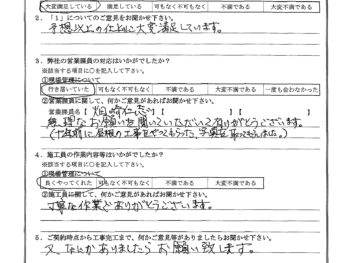 大変満足している 満足している 可もなく不可もなく 不満である 大変不満である
2．「1」についてのご意見をお聞かせ下さい。
予想以上の仕上りに大変満足しています。
3．弊社の営業課員の対応はいかがでしたか？
※該当する項目に○を記入して下さい。
①現場管理について
行き届いていた 可もなく不可もなく 不満である 大変不満である 一度も会わなかった
②営業課員に関して、何かご意見があればお聞かせ下さい。
営業課員名【 】【 】
無理なお願いを聞いていただいてありがとうございます。
4．施工員の作業内容等はいかがでしたか？
※該当する項目に○を記入して下さい。
①現場管理について
良くやってくれた 可もなく不可もなく 不満である 大変不満である
②施工員に関して、何かご意見があればお聞かせ下さい。
丁寧な作業ありがとうございます。
5．ご契約時点から工事完工まで、何かご意見等がありましたらお聞かせ下さい。
又、なにかありましたらお願い致します。